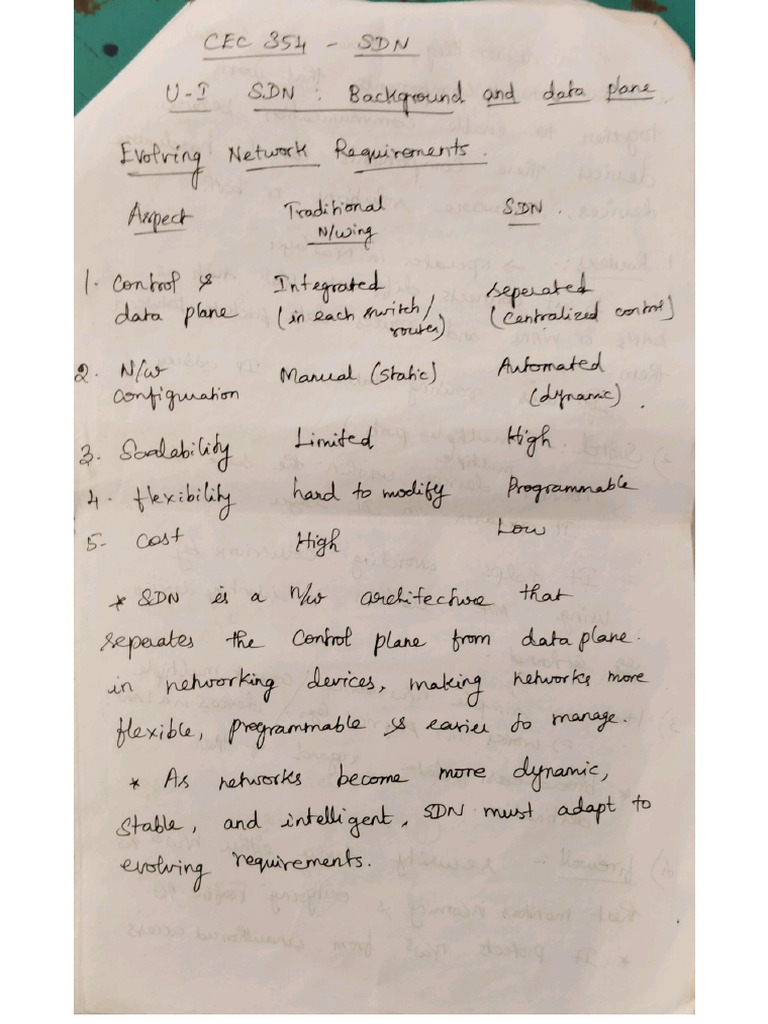 CEC 354 - SDN
U-I SDN : Background and data plane
Evolving Network Requirements.
Aspect Traditional N/wing SDN.
1. Control & data plane Integrated (in each switch/router) seperated (centralized control)
2. N/w configuration Manual (static) Automated (dynamic).
3. Scalability Limited High
4. flexibility hard to modify Programmable
5- cost High Low
* SDN is a n/w architecture that
seperates the control plane from data plane.
in networking devices, making networks more
flexible, programmable & easier to manage.
* As networks become more dynamic,
stable, and intelligent, SDN must adapt to
evolving requirements.